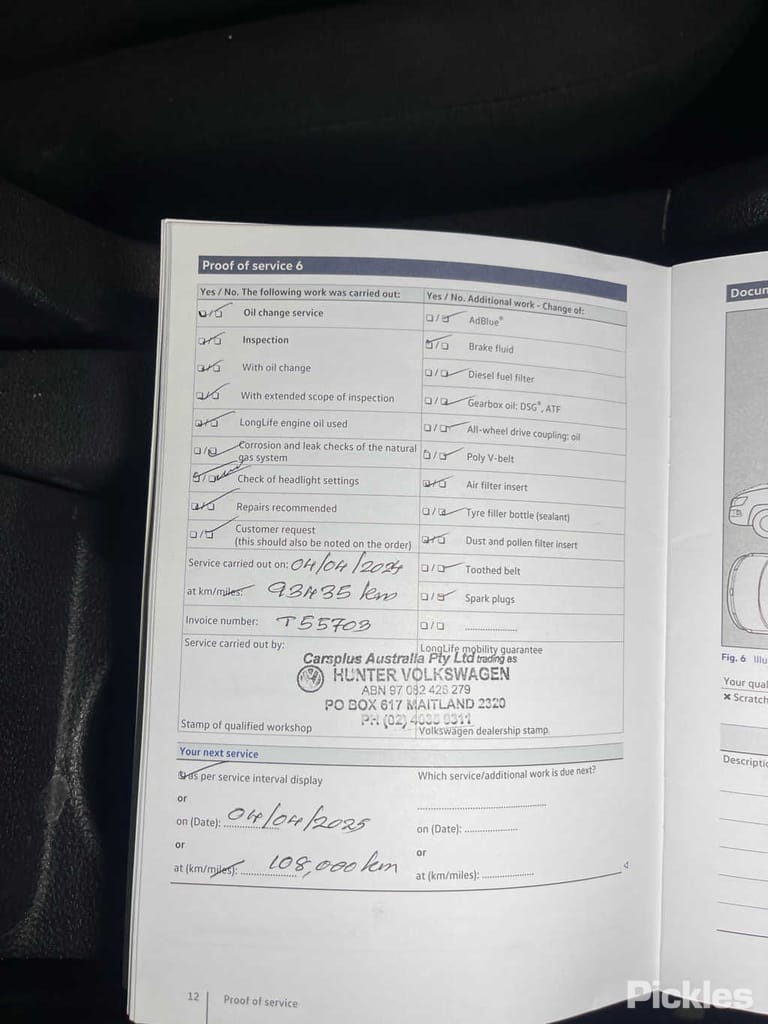 Proof of service 6
Yes / No. The following work was carried out:
Oil change service
Inspection
With oil change
With extended scope of inspection
LongLife engine oil used
Corrosion and leak checks of the natural
gas system
Check of headlight settings
Repairs recommended
Customer request
(this should also be noted on the order)
Service carried out on: 04/04/2024
at km/miles: 93435 km
Invoice number: T55703
Yes / No. Additional work - Change of:
AdBlue®
Brake fluid
Diesel fuel filter
Gearbox oil: DSG®, ATF
All-wheel drive coupling: oil
Poly V-belt
Air filter insert
Tyre filler bottle (sealant)
Dust and pollen filter insert
Toothed belt
Spark plugs
Service carried out by:
LongLife mobility guarantee
Carsplus Australia Pty Ltd trading as
HUNTER VOLKSWAGEN
ABN 97 082 428 279
PO BOX 617 MAITLAND 2320
PH (02)
Stamp of qualified workshop
Volkswagen dealership stamp
Your next service
as per service interval display
or
on (Date): 04/04/2025
or
at (km/miles): 108,000 km
Which service/additional work is due next?
on (Date):
or
at (km/miles):
12
Proof of service
Docum
Fig. 6 Illu
Your qual
Scratch
Descriptio
Pickles